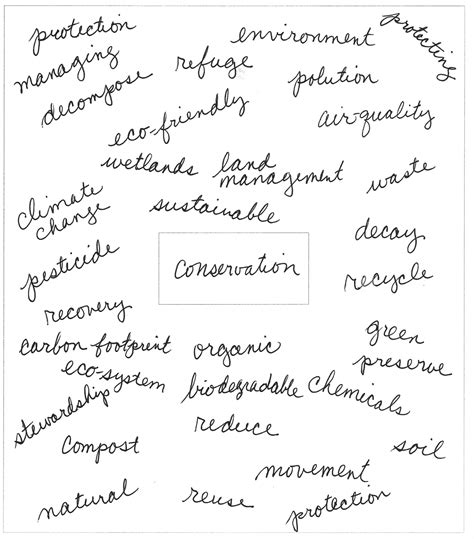 protection
environment
protecting
managing
refuge
polution
decompose
eco-friendly
air-quality
wetlands
land
management
waste
climate
change
sustainable
decay
pesticide
Conservation
recycle
recovery
carbon footprint
organic
green
preserve
eco-system
biodegradable
Chemicals
stewardship
reduce
Compost
soil
movement
natural
reuse
protection